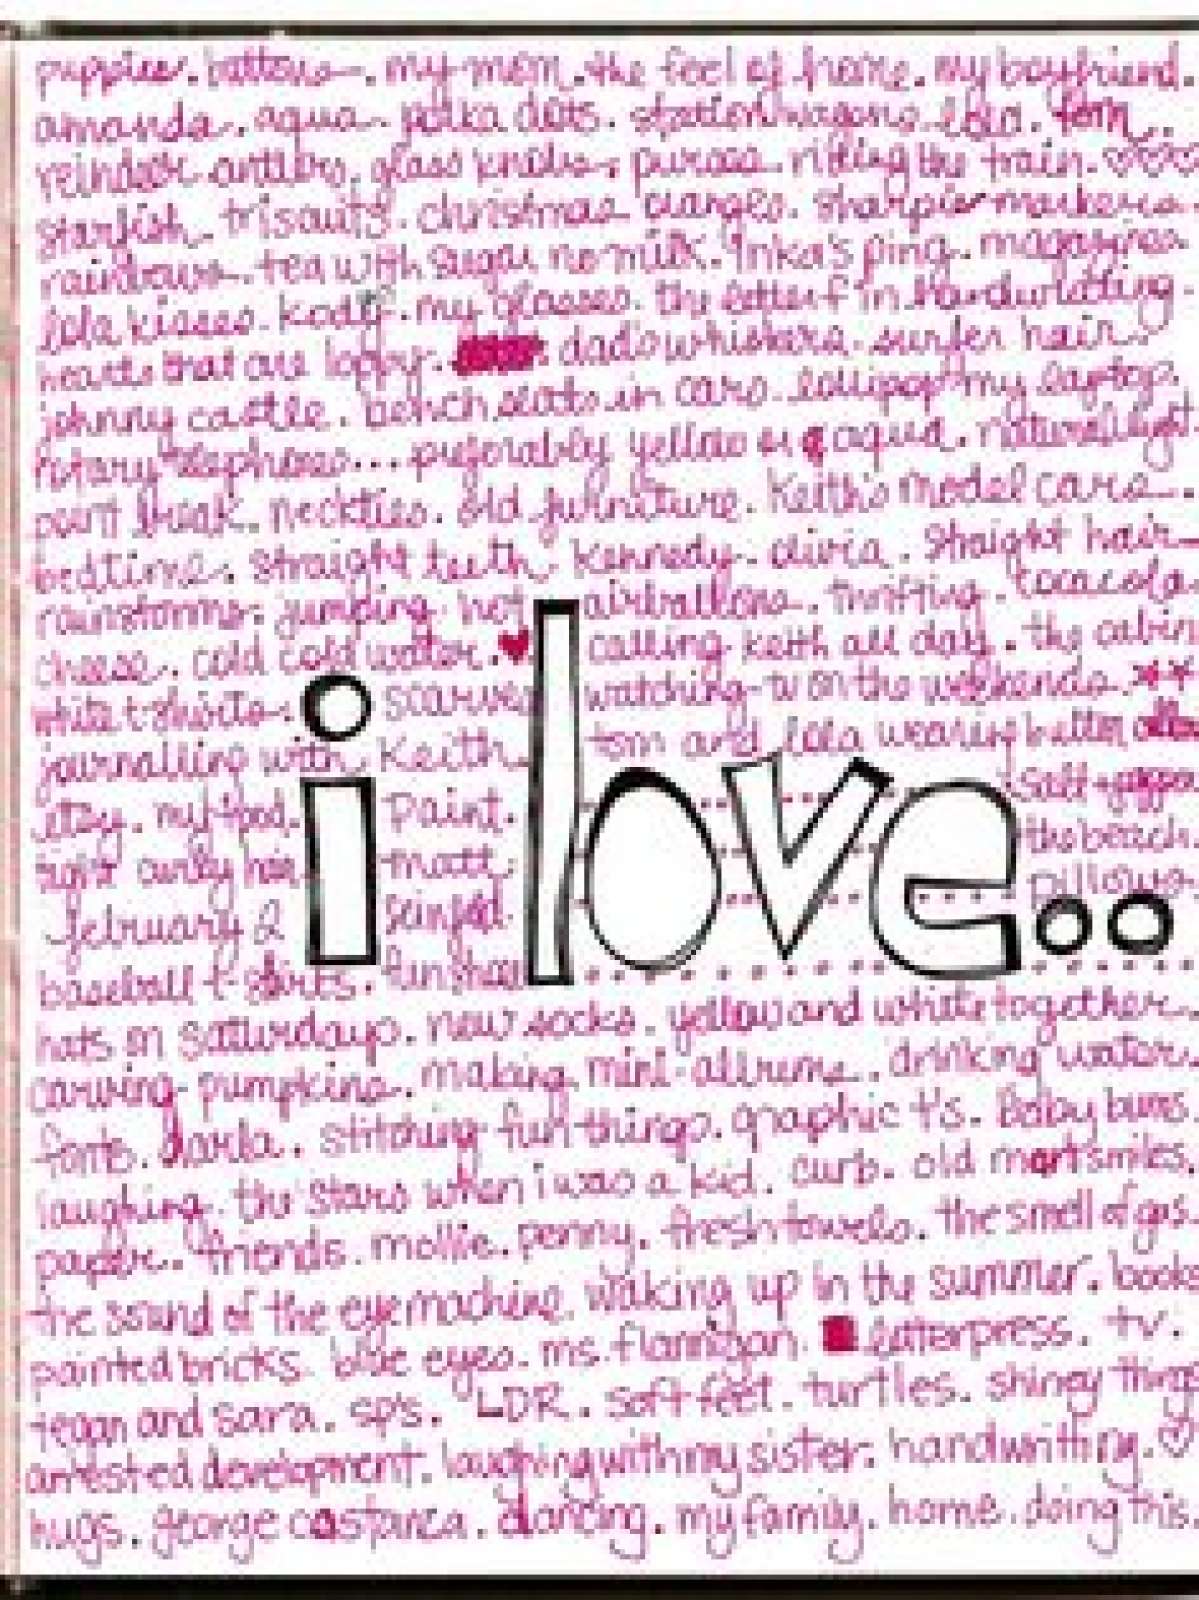 puppies. buttons. my mom. the feel of home. my boyfriend.
amanda. aqua. polka dots. station wagons. lola. tom..
reindeer antlers. glass knobs. purses. riding the train.
starfish. triscuits. christmas oranges. sharpie markers.
rainbows. tea with sugar no milk. inka's ping. magazines
lola kisses. my glasses. the letter f in handwriting.
hearts that are loppy. dad's whiskers. surfer hair.
johnny castle. bench seats in cars. lollipop my laptop.
rotary telephones... preferably yellow or aqua. natural light
point break. neckties. old furniture. keith's model cars.
bedtime. straight teeth. kennedy. olivia. straight hair
rainstorms. jumping. hot airballoons. thrifting. cocacola
cheese. cold cold water. calling keith all day. the cabin
white t-shirts. scarves watching tv on the weekends.
journalling with keith. tom and lola wearing
etsy. paint. salt + pepper
matt. the beach.
february 2 seinfeld. pillows.
i love..
baseball t-shirts.
hats on saturdays. new socks. yellow and white together.
carving pumpkins. making mini-albums. drinking water.
fonts. darla. stitching fun things. graphic t's. baby buns
laughing. the stars when i was a kid. curb. old smiles.
paper. friends. mollie. penny. fresh towels. the smell of gas.
the sound of the eye machine. waking up in the summer. books
painted bricks. blue eyes. ms. flannigan. letterpress. tv.
tegan and sara. sp's. LDR. soft feet. turtles. shiney things
arrested development. laughing with my sister. handwriting.
hugs. george costanza. dancing. my family. home. doing this.